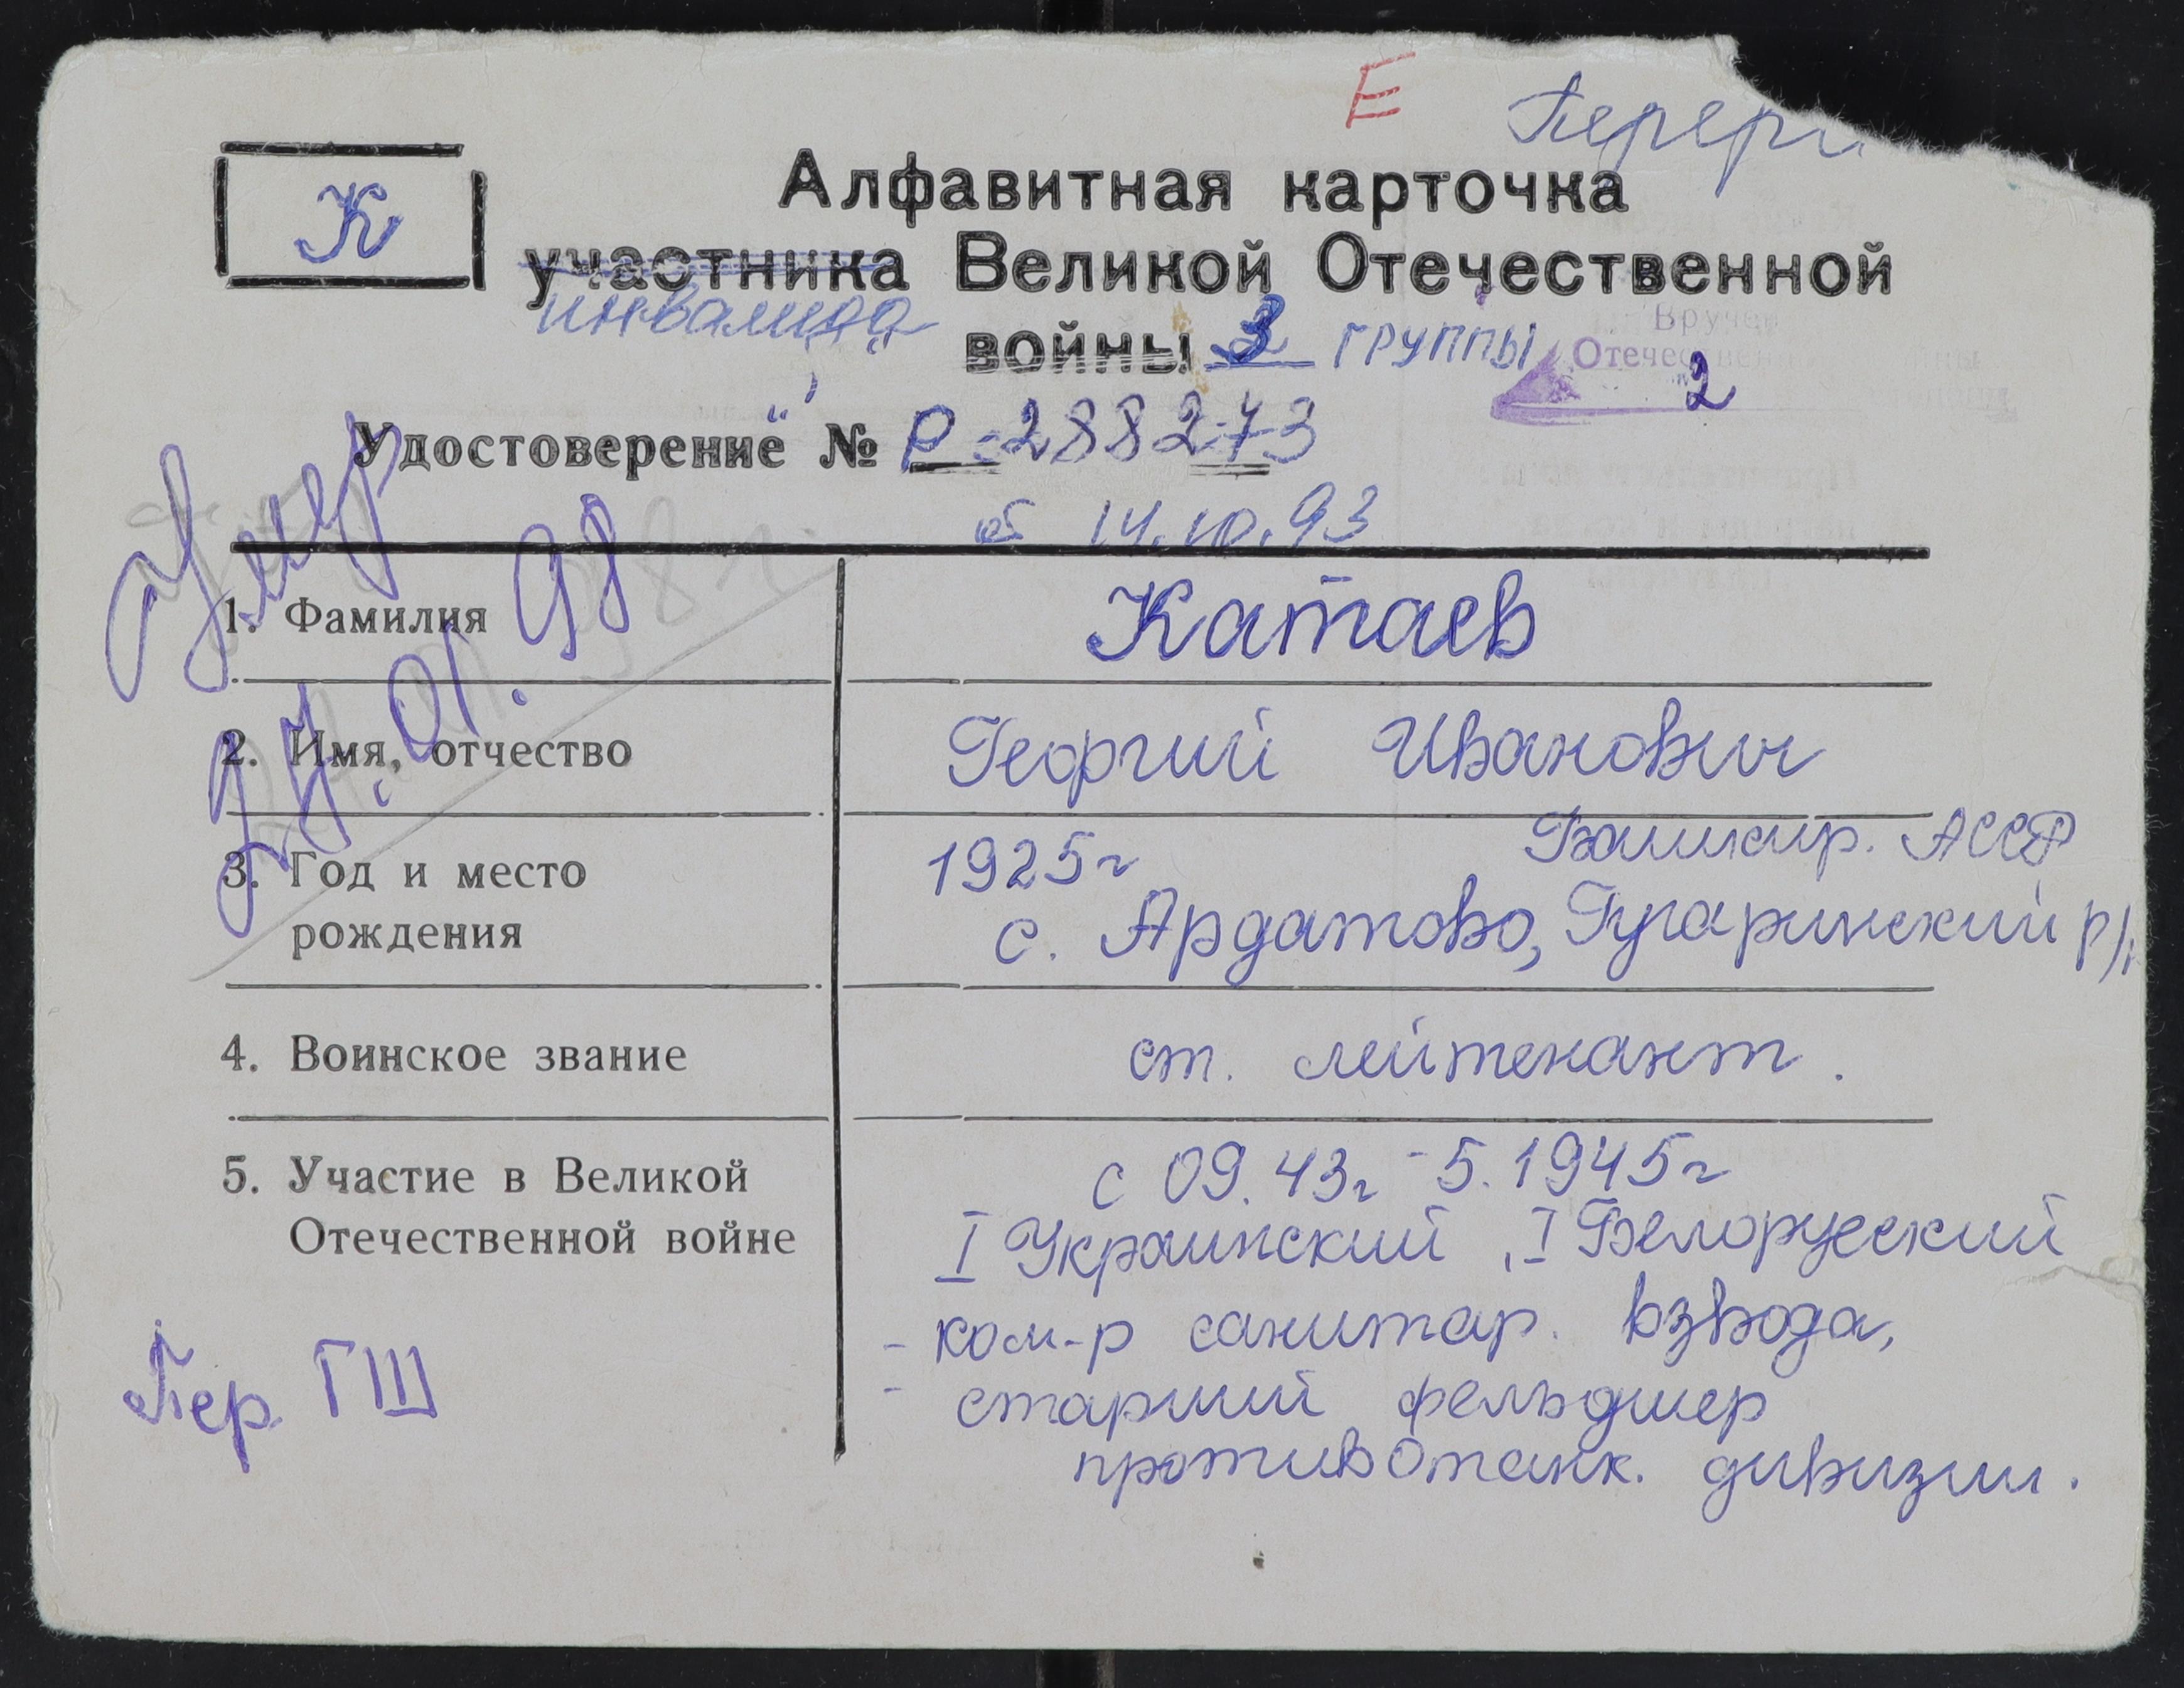 Е
К
Алфавитная карточка
участника Великой Отечественной
инвалида
войны 3 группы
Отечес
2
Удостоверение № Р-288273
от 14.10.93
Умер
27.01.98
1. Фамилия Катаев
2. Имя, отчество Георгий Иванович
3. Год и место 1925г Башкир. АССР
рождения с. Ардатово, Гугаринский р/
4. Воинское звание ст. лейтенант.
5. Участие в Великой с 09.43г - 5.1945г
Отечественной войне I Украинский, I Белорусский
- ком-р санитар. взвода,
- старший фельдшер
противотанк. дивизии.
Пер. ГШ